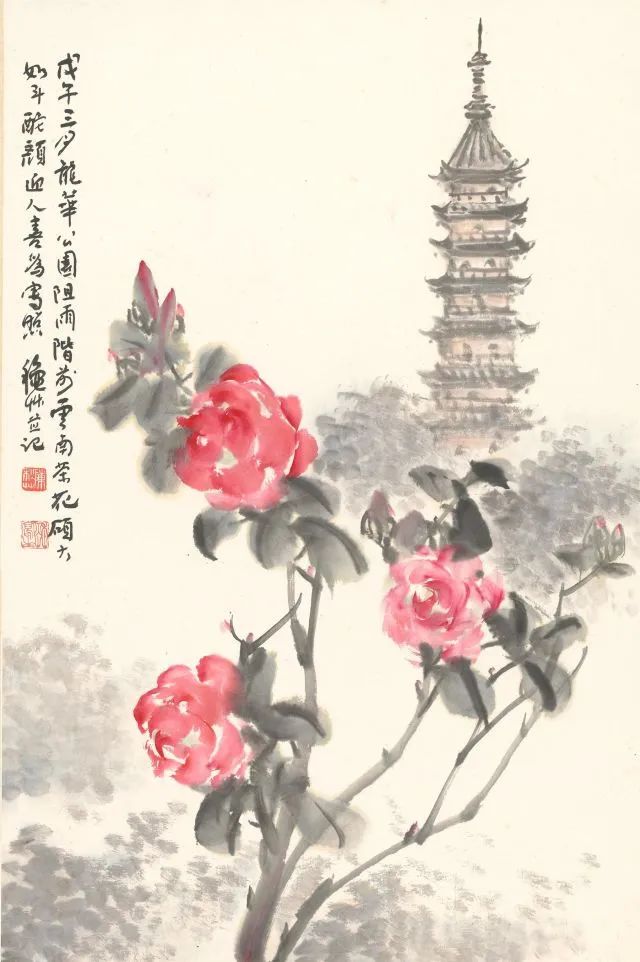 戊午三月龍華公園阻雨階前雲南茶花碩大
如斗酡顏迎人喜為寫照 穐艸並记